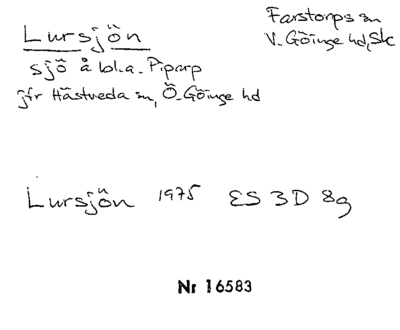 Lursjön
Farstorps sn
V. Göinge hd, Sk
sjö å bl.a. Piparp
jfr Hästveda sn, Ö. Göinge hd
Lursjön 1975 ES 3D 8g
Nr 16583